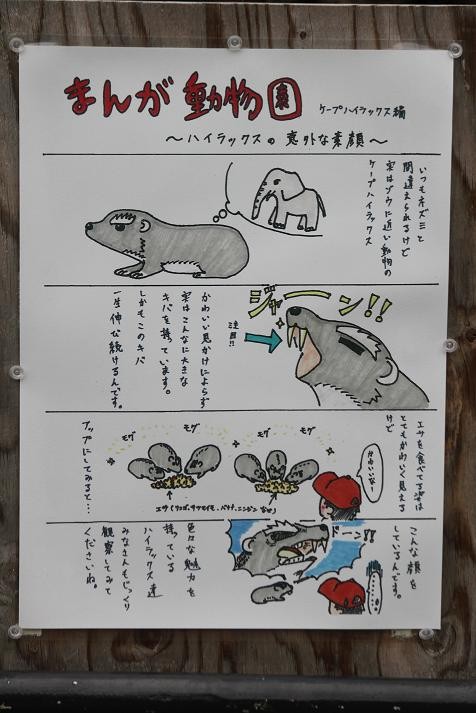 まんが動物園 ケープハイラックス編
～ハイラックスの意外な素顔～
いつもネズミと
間違えられるけど
実はゾウに近い動物の
ケープハイラックス
ジャーン!!
注目!!
かわいい見かけによらず
実はこんなに大きな
キバを持っています。
しかもこのキバ
一生伸び続けるんです。
エサを食べてる姿は
とてもかわいく見える
けど
かわいいなー
モグ
モグ
モグ
モグ
エサ(リンゴ、サツマイモ、バナナ、ニンジンなど)
アップにしてみると…
こんな顔を
しているんです。
ドーン!!
色々な魅力を
持っている
ハイラックス達
みなさんもじっくり
観察してみて
くださいね。